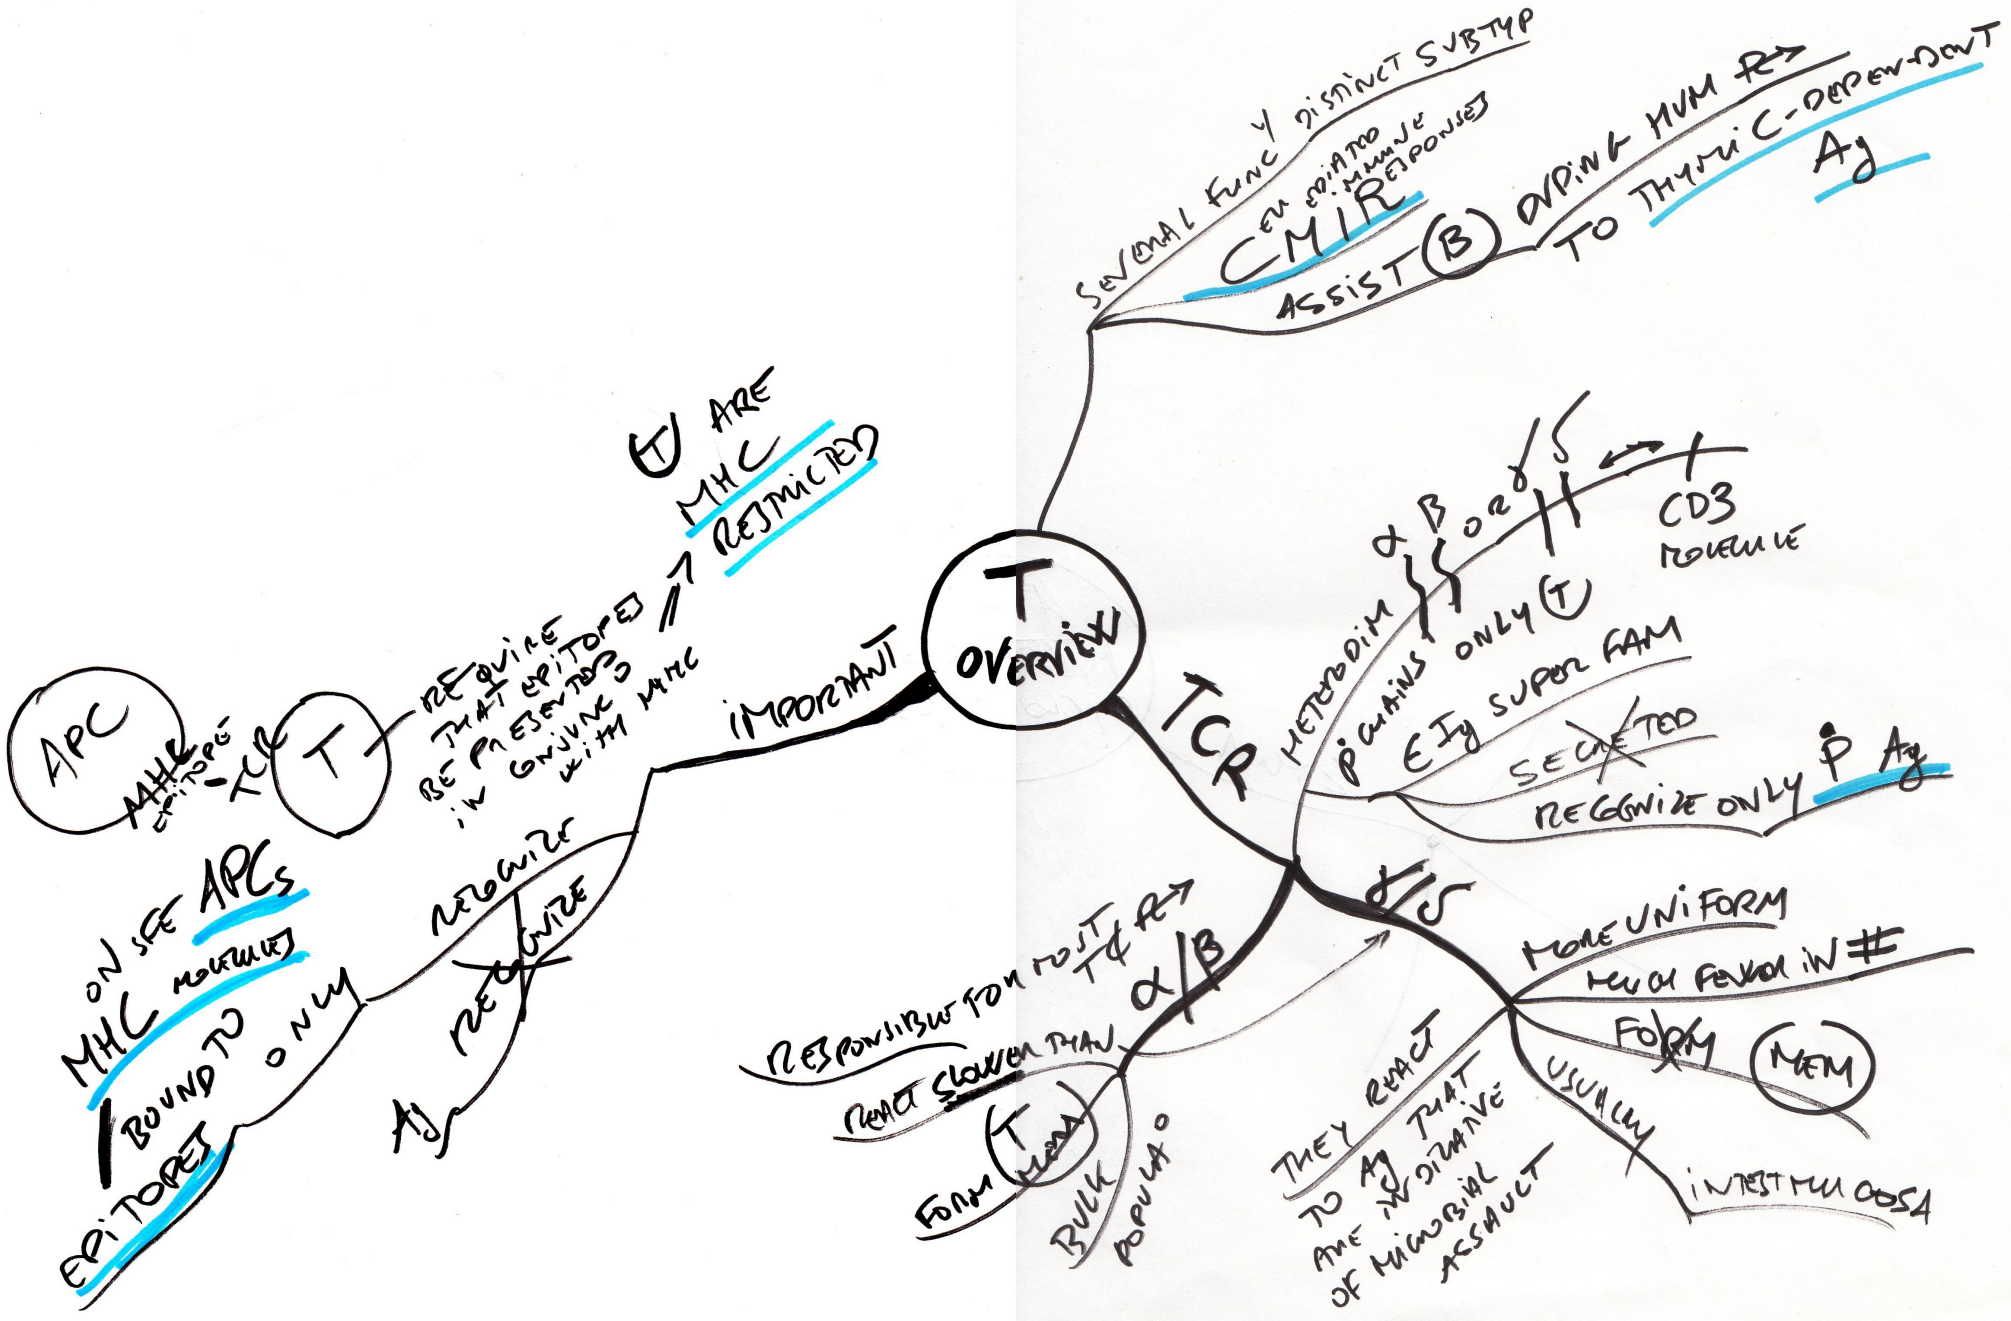 T
OVERVIEW
SEVERAL FUNC Y DISTINCT SUBTYP
CELL MEDIATED
IMMUNE
RESPONSES
CMIR
ASSIST B DURING HUM R→
TO THYMIC-DEPENDENT
Ag
TCR
HETERODIM
α β OR γ δ ↔ CD3
MOLECULE
P CHAINS ONLY T
∈ Ig SUPER FAM
SECRETED
RECOGNIZE ONLY P Ag
γ/δ
MORE UNIFORM
MUCH FEWER IN #
FORM MEM
USUALLY
INTEST MUCOSA
THEY REACT
TO Ag THAT
ARE INDICATIVE
OF MICROBIAL
ASSAULT
α/β
RESPONSIBLE FOR MOST
T¢ R→
REACT SLOWER THAN
FORM T MEM
BULK
POPULAO
IMPORTANT
T ARE
MHC
RESTRICTED
REQUIRE
THAT EPITOPES
BE PRESENTED
IN CONJUNC
WITH MHC
T
TCR
MHC
EPITOPE
APC
RECOGNIZE
ONLY
EPITOPES
BOUND TO
MHC MOLECULES
ON SFE APCs
RECOGNIZE
Ag